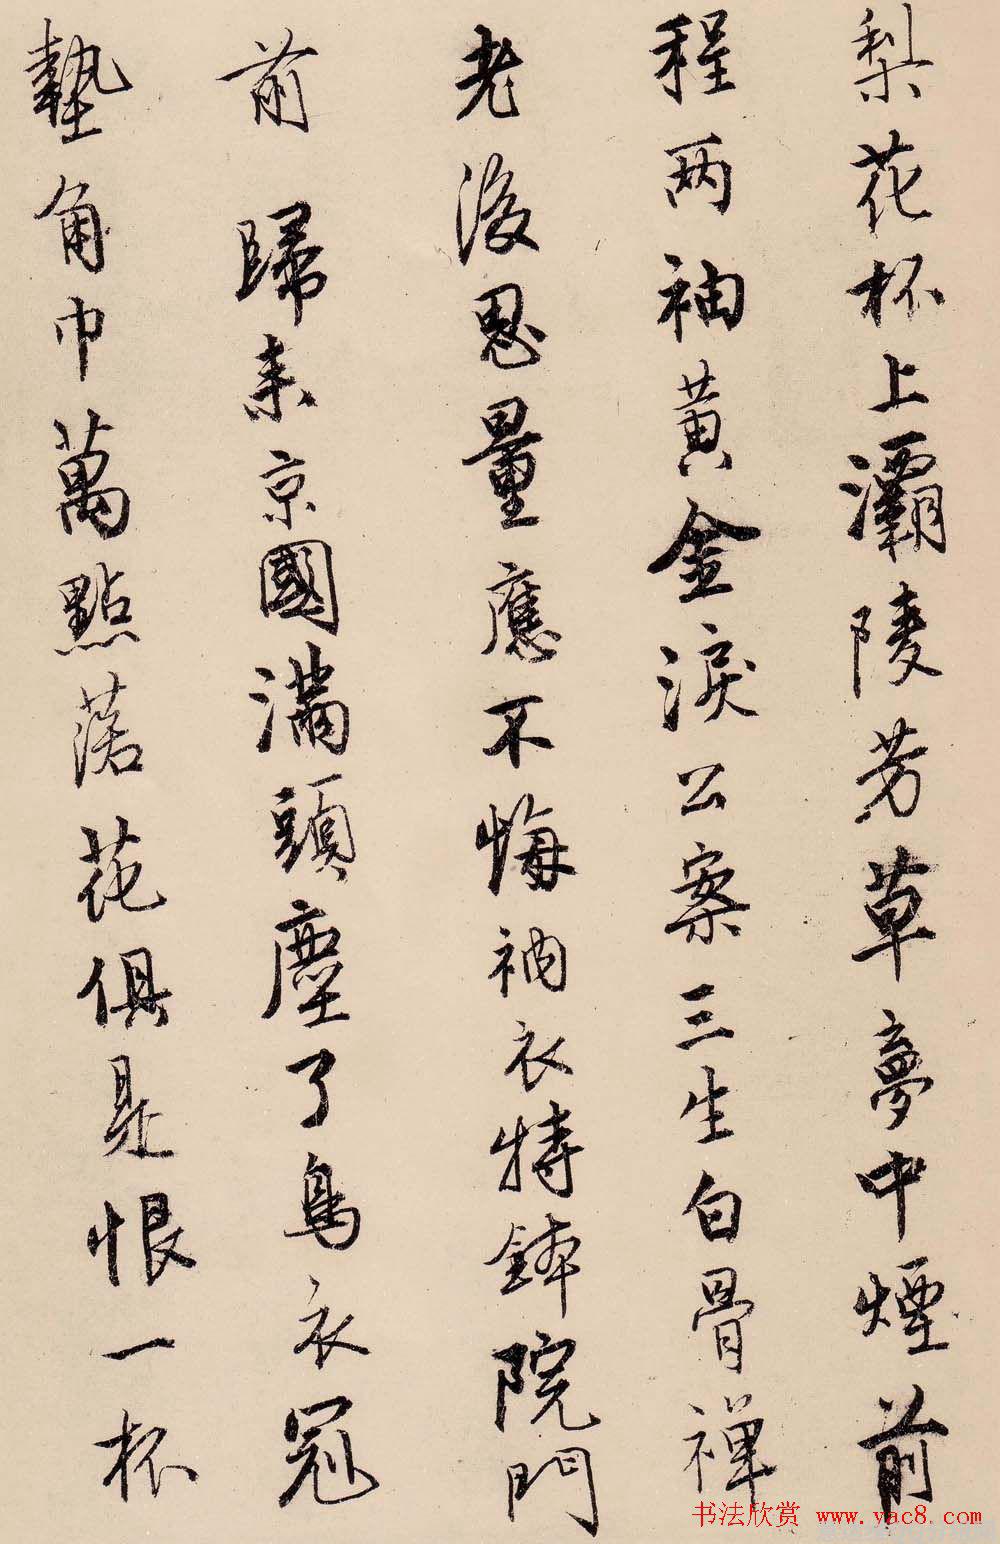 梨花杯上灞陵芳草夢中煙前
程两袖黃金淚公案三生白骨禪
老後思量應不悔衲衣持鉢院門
前 歸來京國滿頭塵了烏衣冠
墊角巾萬點落花俱是恨一杯
书法欣赏 www.yac8.com